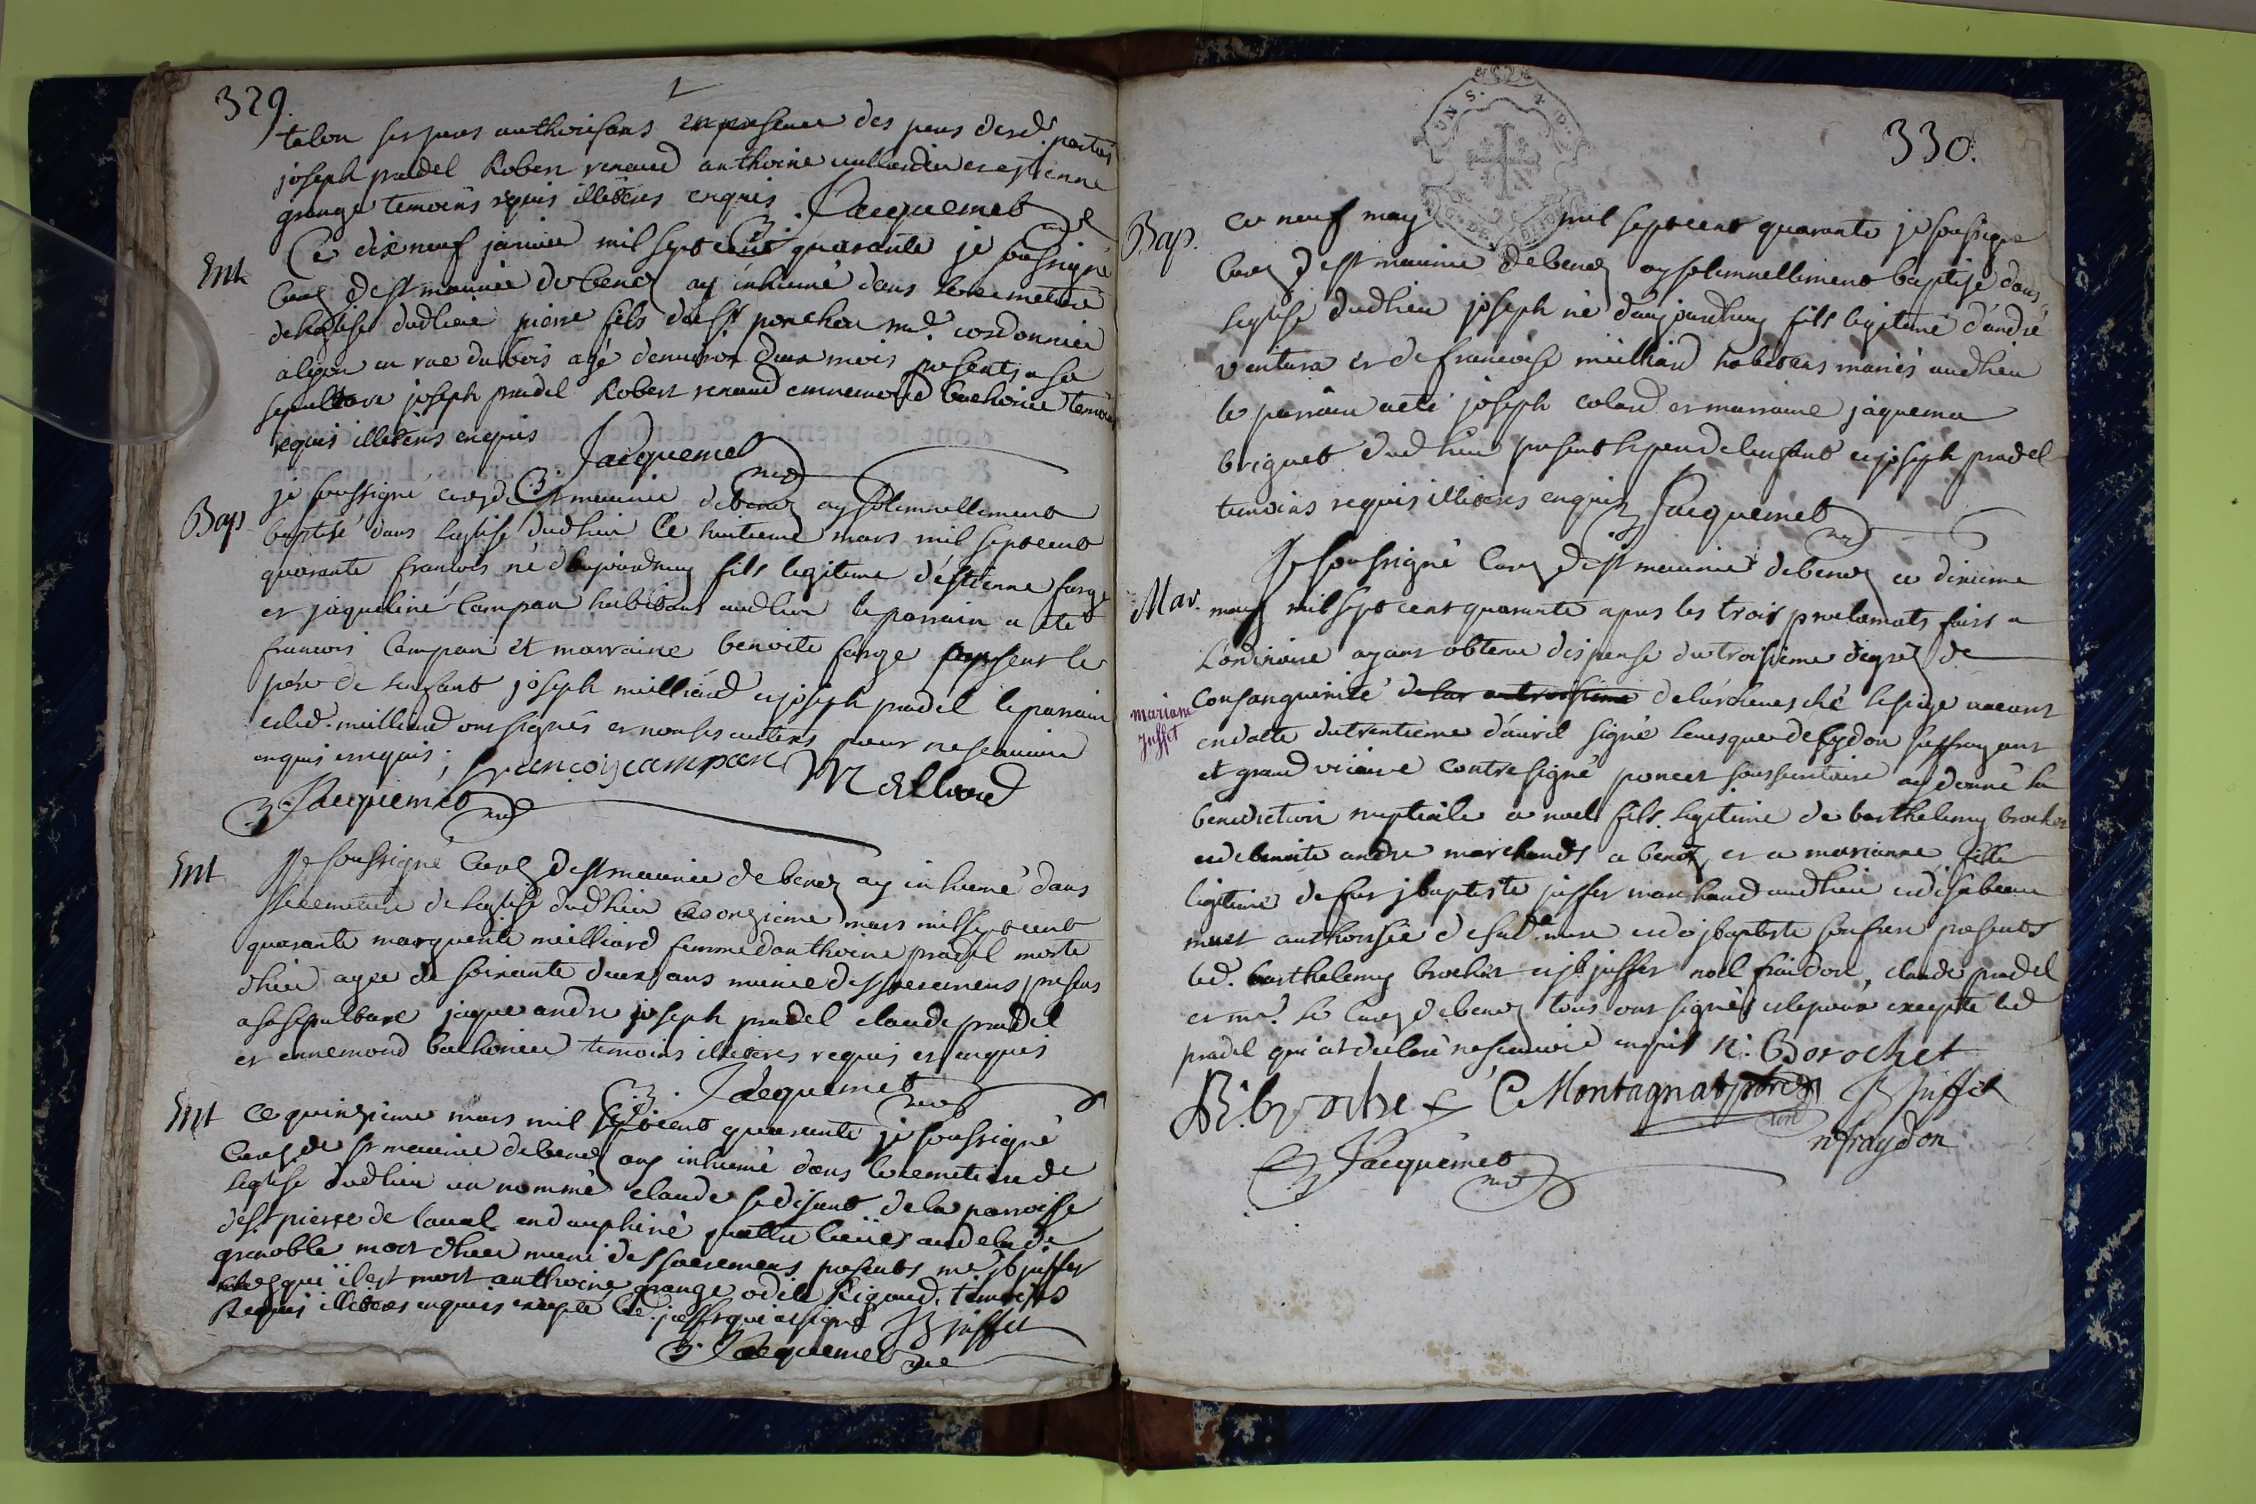 329.
talon ses pere authorisans en presence des peres desd. parties
joseph pradel Robert renaud anthoine et estienne
grange temoins requis illiteres enquis Jacquemet
Ent
Ce dix neuf janvier mil sept cent quarante je soussigné
Curé de st maurice de benos ay inhumé dans le cemetiere
de leglise dudlieu pierre fils de Sr. ponchon md. cordonnier
a lyon en rue du bois agé denviron deux mois presents a sa
sepulture joseph pradel Robert renaud ennemond bachonier temoins
requis illiteres enquis Jacquemet
Bap
je soussigné curé de st maurice de benos ay solemnellement
baptisé dans leglise dudlieu Ce huitieme mars mil sept cent
quarante francois né daujourdhuy fils legitime d'estienne farge
et jaqueline Campan habitans audlieu le parrain a eté
francois Campan et marraine benoite farge present le
pere de lenfant joseph meilliard et joseph pradel le parrain
et led. meilliard ont signés et non les autres pour ne scavoir
enquis requis;
francois campan Meilliard
Jacquemet
Ent
Je soussigné Curé de st maurice de benos ay inhumé dans
le cemetiere de leglise dudlieu Ce onzieme mars mil sept cent
quarante marguerite meilliard femme danthoine pradel morte
d'hier agee de soixante deux ans munie des sacremens presens
a sa sepulture jaque andre joseph pradel claude pradel
et ennemond bachonier temoins illiteres requis et enquis
Jacquemet
Ent
Ce quinzieme mars mil sept cent quarante je soussigné
Curé de st maurice de benos ay inhumé dans le cemetiere de
leglise dudlieu un nommé claude se disant de la parroisse
de st pierre de laval en dauphiné quattre lieües audela de
grenoble mort d'hier muni des sacremens presents me jb juffet
chez qui il est mort anthoine grange odile Rigaud, temoins
Requis illiteres enquis excepté led. juffet qui a signé JB juffet
Jacquemet
330.
Bap.
ce neuf may mil sept cent quarante je soussigné
Curé de st maurice de benos ay solemnellement baptisé dans
leglise dudlieu joseph né daujourdhuy fils legitime d'andré
ventura et de francoise meilliard habitans mariés audlieu
le parrain a eté joseph colard et marraine jaquema
briguet dudlieu present le pere de lenfant et joseph pradel
temoins requis illiteres enquis Jacquemet
Mar.
Je soussigné Curé de st maurice de benos ce dixieme
may mil sept cent quarante apres les trois proclamats faits a
L'ordinaire ayant obtenu dispense du troisieme degré de
mariane
juffet
consanguinité de l'archeveché le siege vacant
en datte du trentieme d'avril signé leveque de sydon suffragant
et grand vicaire contresigné poncet sous secretaire ay donné la
benediction nuptiale a noel fils legitime de barthelemy brochet
et de benoite andre marchands a benos, et a marianne fille
legitime de feu jbaptiste juffet marchand audlieu et d'isabeau
muet authorisée de sad. mere et de jbaptiste son frere presents
led. barthelemy brochet et jb juffet noel fraidon, claude pradel
et mr. le curé de benos tous ont signés et lepoux excepté led
pradel qui a declaré ne scavoir enquis N. Borochet
B. brochet C Montagnat ptre JB juffet
n fraydon
Jacquemet